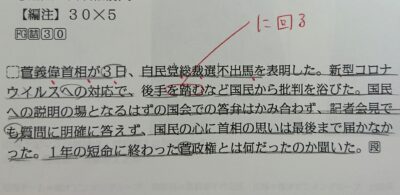 【編注】30×5
に回る
□菅義偉首相が3日、自民党総裁選不出馬を表明した。新型コロナ
ウイルスへの対応で、後手を踏むなど国民から批判を浴びた。国民
への説明の場となるはずの国会での答弁はかみ合わず、記者会見で
も質問に明確に答えず、国民の心に首相の思いは最後まで届かなか
った。1年の短命に終わった菅政権とは何だったのか聞いた。